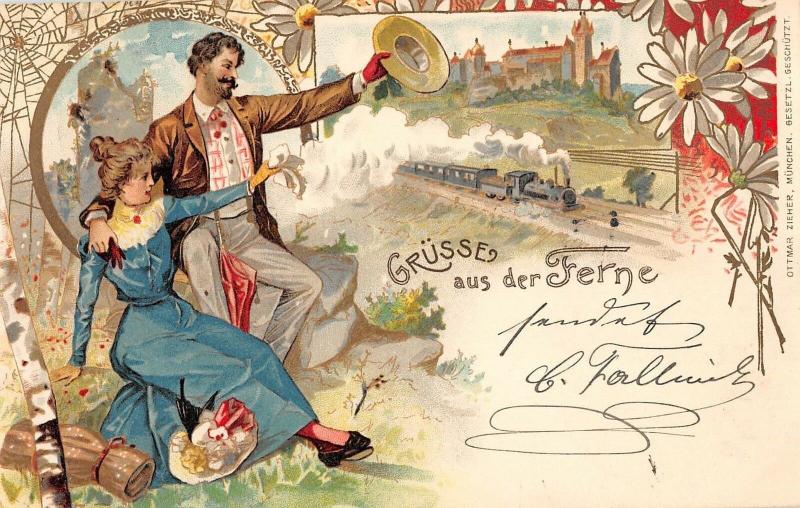 GRÜSSE
aus der Ferne
sendet
OTTMAR ZIEHER, MÜNCHEN. GESETZL. GESCHÜTZT.